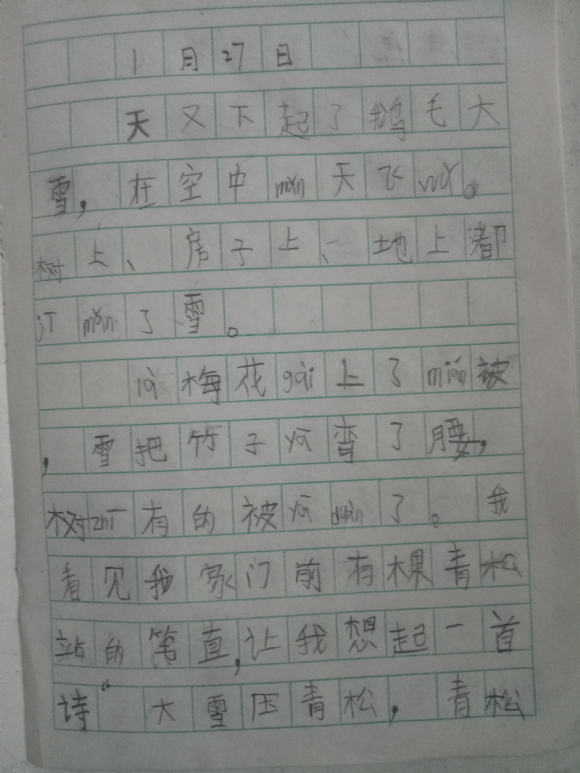 1月27日
天又下起了鹅毛大
雪，在空中mǎn天飞wǔ。
树上、房子上、地上都
jī mǎn了雪。
là梅花gài上了mián被
，雪把竹子yā弯了腰，
树zhī有的被yā duàn了。我
看见我家门前有棵青松
站的笔直，让我想起一首
诗“大雪压青松，青松